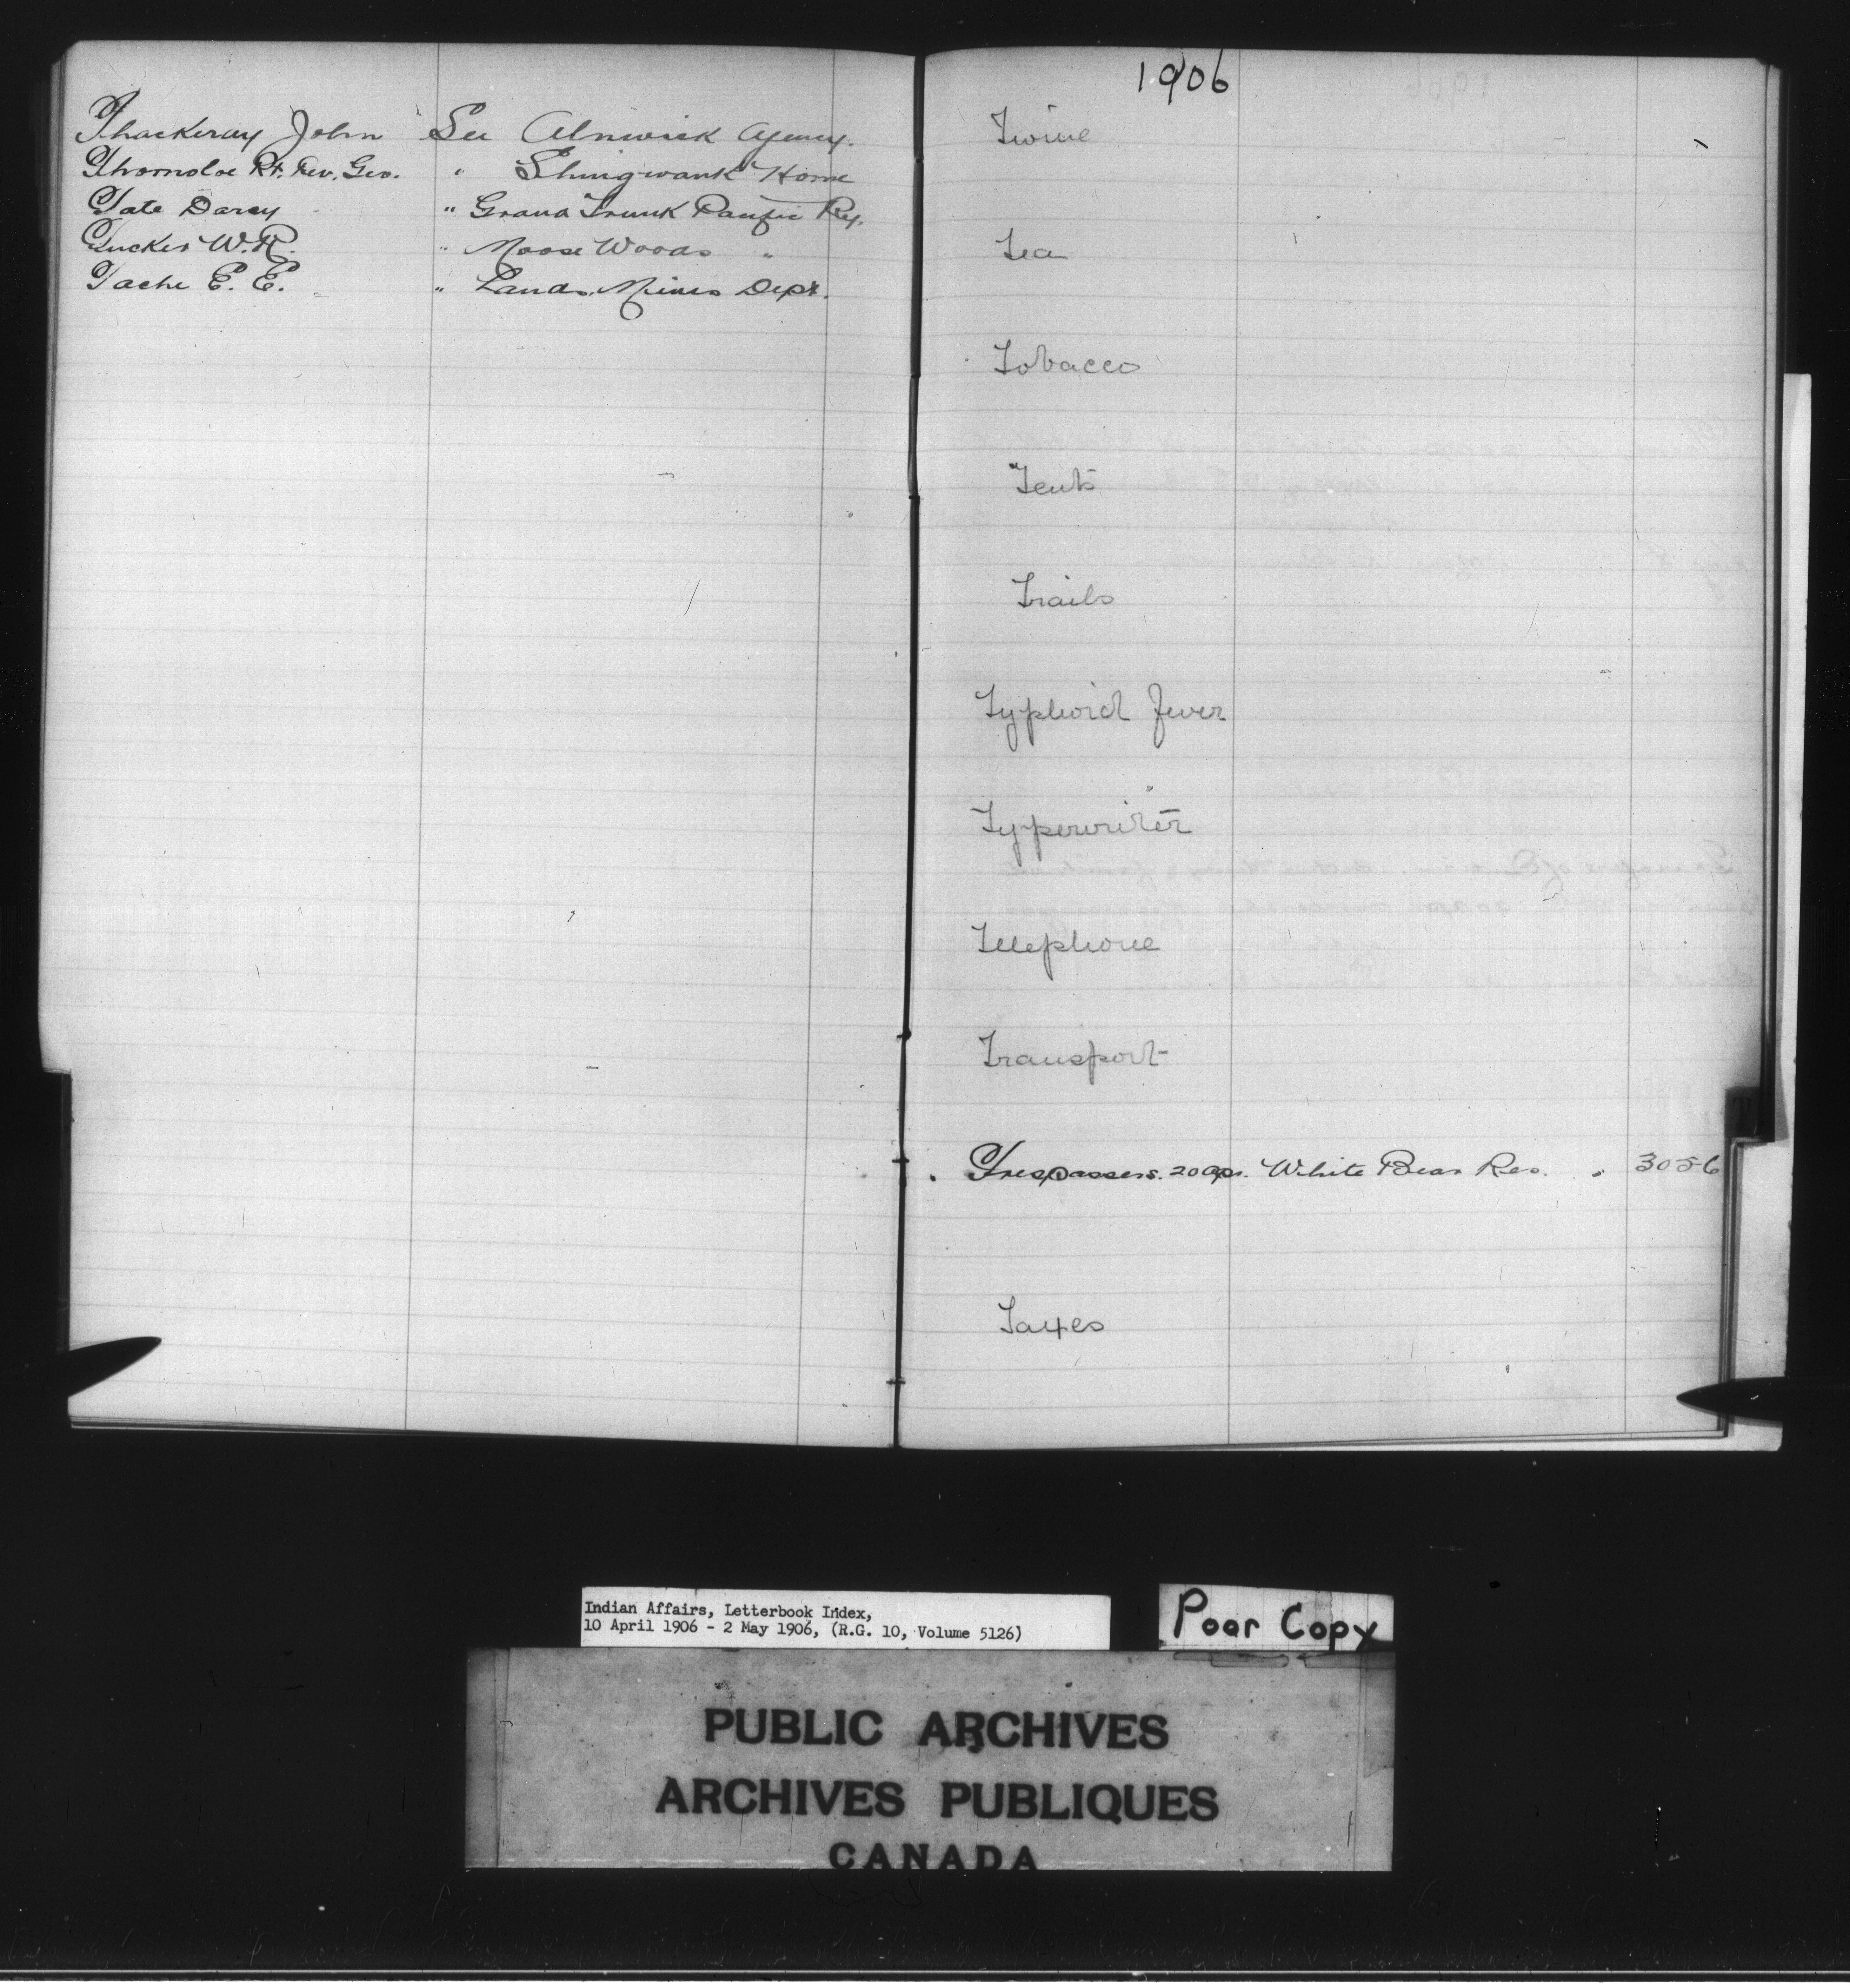 Thackeray John See Alnwick Agency.
Thornoloe Rt. Rev. Geo. " Shingwauk Home
Tate Darcy " Grand Trunk Pacific Ry.
Tucker W.R. " Moose Woods "
Tache E. E. " Lands Mines Dept.
1906
Twine
Tea
Tobacco
Tents
Trails
Typhoid Fever
Typewriter
Telephone
Transport
Trespassers. 20 Apr. White Bear Res. 3056
Taxes
T
Indian Affairs, Letterbook Index,
10 April 1906 - 2 May 1906, (R.G. 10, Volume 5126)
Poor Copy
PUBLIC ARCHIVES
ARCHIVES PUBLIQUES
CANADA